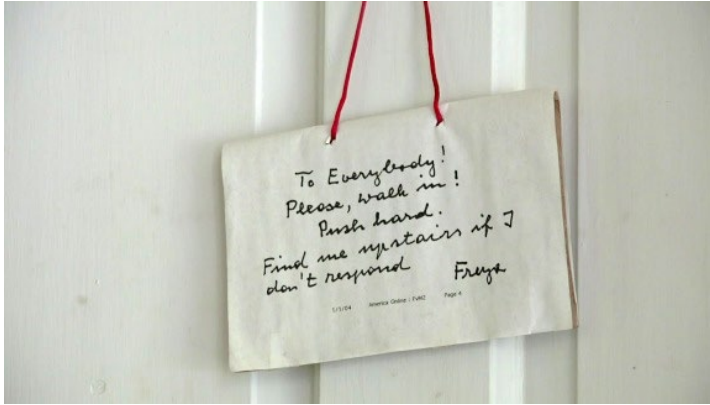 To Everybody!
Please, walk in!
Push hard.
Find me upstairs if I
don't respond Freya
1/1/04 America Online : FVM2 Page 4